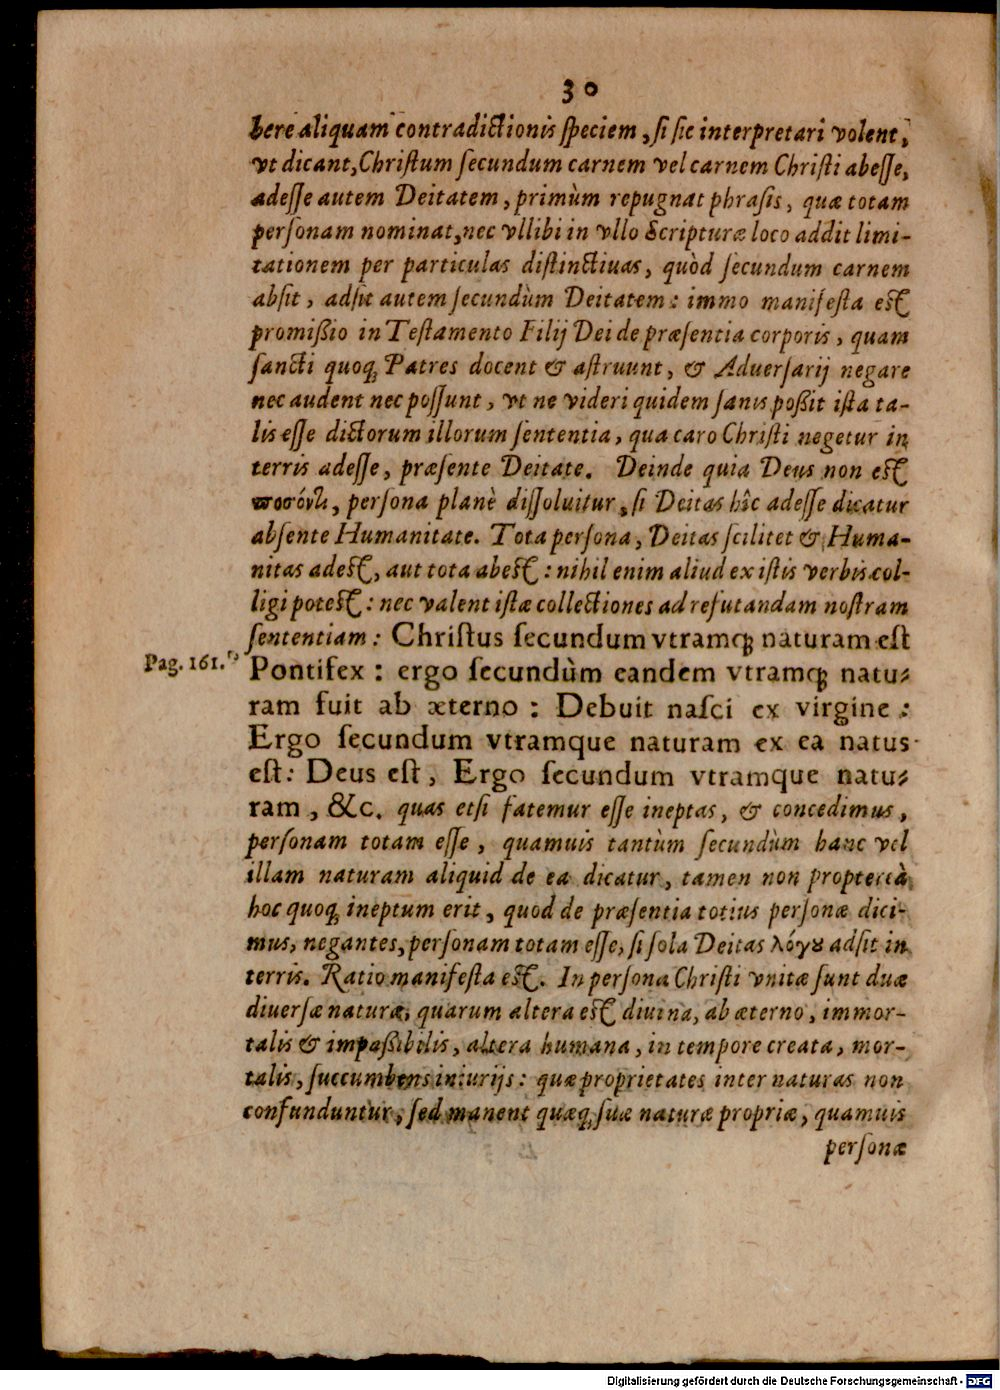 30
bere aliquam contradictionis ſpeciem, ſi ſic interpretari volent,
vt dicant, Chriſtum ſecundum carnem vel carnem Chriſti abeſſe,
adeſſe autem Deitatem, primùm repugnat phraſis, quæ totam
perſonam nominat, nec vllibi in vllo Scripturæ loco addit limi-
tationem per particulas diſtinctiuas, quòd ſecundum carnem
abſit, adſit autem ſecundùm Deitatem: immo manifeſta eſt
promißio in Teſtamento Filij Dei de præſentia corporis, quam
ſancti quoq; Patres docent & aſtruunt, & Aduerſarij negare
nec audent nec poſſunt, vt ne videri quidem ſanis poßit iſta ta-
lis eſſe dictorum illorum ſententia, qua caro Chriſti negetur in
terris adeſſe, præſente Deitate. Deinde quia Deus non eſt
perſona planè diſſoluitur, ſi Deitas hîc adeſſe dicatur
abſente Humanitate. Tota perſona, Deitas ſcilitet & Huma-
nitas adeſt, aut tota abeſt: nihil enim aliud ex iſtis verbis col-
ligi poteſt: nec valent iſtæ collectiones ad refutandam noſtram
ſententiam: Chriſtus ſecundum vtramq; naturam eſt
Pag. 161.
Pontifex: ergo ſecundùm eandem vtramq; natu-
ram fuit ab æterno: Debuit naſci ex virgine:
Ergo ſecundum vtramque naturam ex ea natus
eſt: Deus eſt, Ergo ſecundum vtramque natu-
ram, &c. quas etſi fatemur eſſe ineptas, & concedimus,
perſonam totam eſſe, quamuis tantùm ſecundùm hanc vel
illam naturam aliquid de ea dicatur, tamen non proptereà
hoc quoq; ineptum erit, quod de præſentia totius perſonæ dici-
mus, negantes, perſonam totam eſſe, ſi ſola Deitas λόγȣ adſit in
terris. Ratio manifeſta eſt. In perſona Chriſti vnitæ ſunt duæ
diuerſæ naturæ, quarum altera eſt diuina, ab æterno, immor-
talis & impaßibilis, altera humana, in tempore creata, mor-
talis, ſuccumbens iniurijs: quæ proprietates inter naturas non
confunduntur, ſed manent quæq; ſuæ naturæ propriæ, quamuis
perſonæ
Digitalisierung gefördert durch die Deutsche Forschungsgemeinschaft - DFG